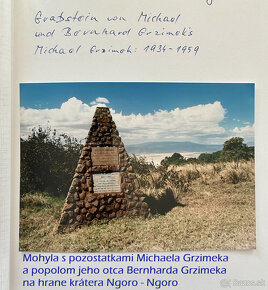 Grabstein von Michael
und Bernhard Grzimek's
Michael Grzimek: 1934-1959
Mohyla s pozostatkami Michaela Grzimeka
a popolom jeho otca Bernharda Grzimeka
na hrane krátera Ngoro - Ngoro
bazos.sk